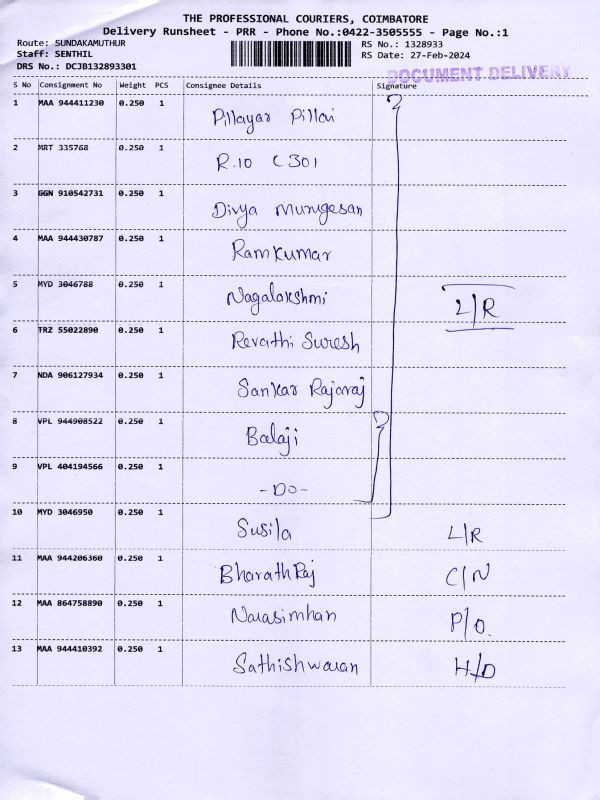 THE PROFESSIONAL COURIERS, COIMBATORE
Delivery Runsheet - PRR - Phone No.:0422-3505555 - Page No.:1
Route: SUNDAKAMUTHUR RS No.: 1328933
Staff: SENTHIL RS Date: 27-Feb-2024
DRS No.: DCJB132893301
DOCUMENT DELIVERY
S No Consignment No Weight PCS Consignee Details Signature
1 MAA 944411230 0.250 1 Pillayar Pillai
2 MRT 335768 0.250 1 R.10 C 301
3 GGN 910542731 0.250 1 Divya Murugesan
4 MAA 944430787 0.250 1 Ramkumar
5 MYD 3046788 0.250 1 Nagalakshmi L/R
6 TRZ 55022890 0.250 1 Revathi Suresh
7 NDA 906127934 0.250 1 Sankar Rajaraj
8 VPL 944908522 0.250 1 Balaji
9 VPL 404194566 0.250 1 -Do-
10 MYD 3046950 0.250 1 Susila L/R
11 MAA 944206360 0.250 1 BharathRaj C/N
12 MAA 864758890 0.250 1 Narasimhan P/O.
13 MAA 944410392 0.250 1 Sathishwaran H/D